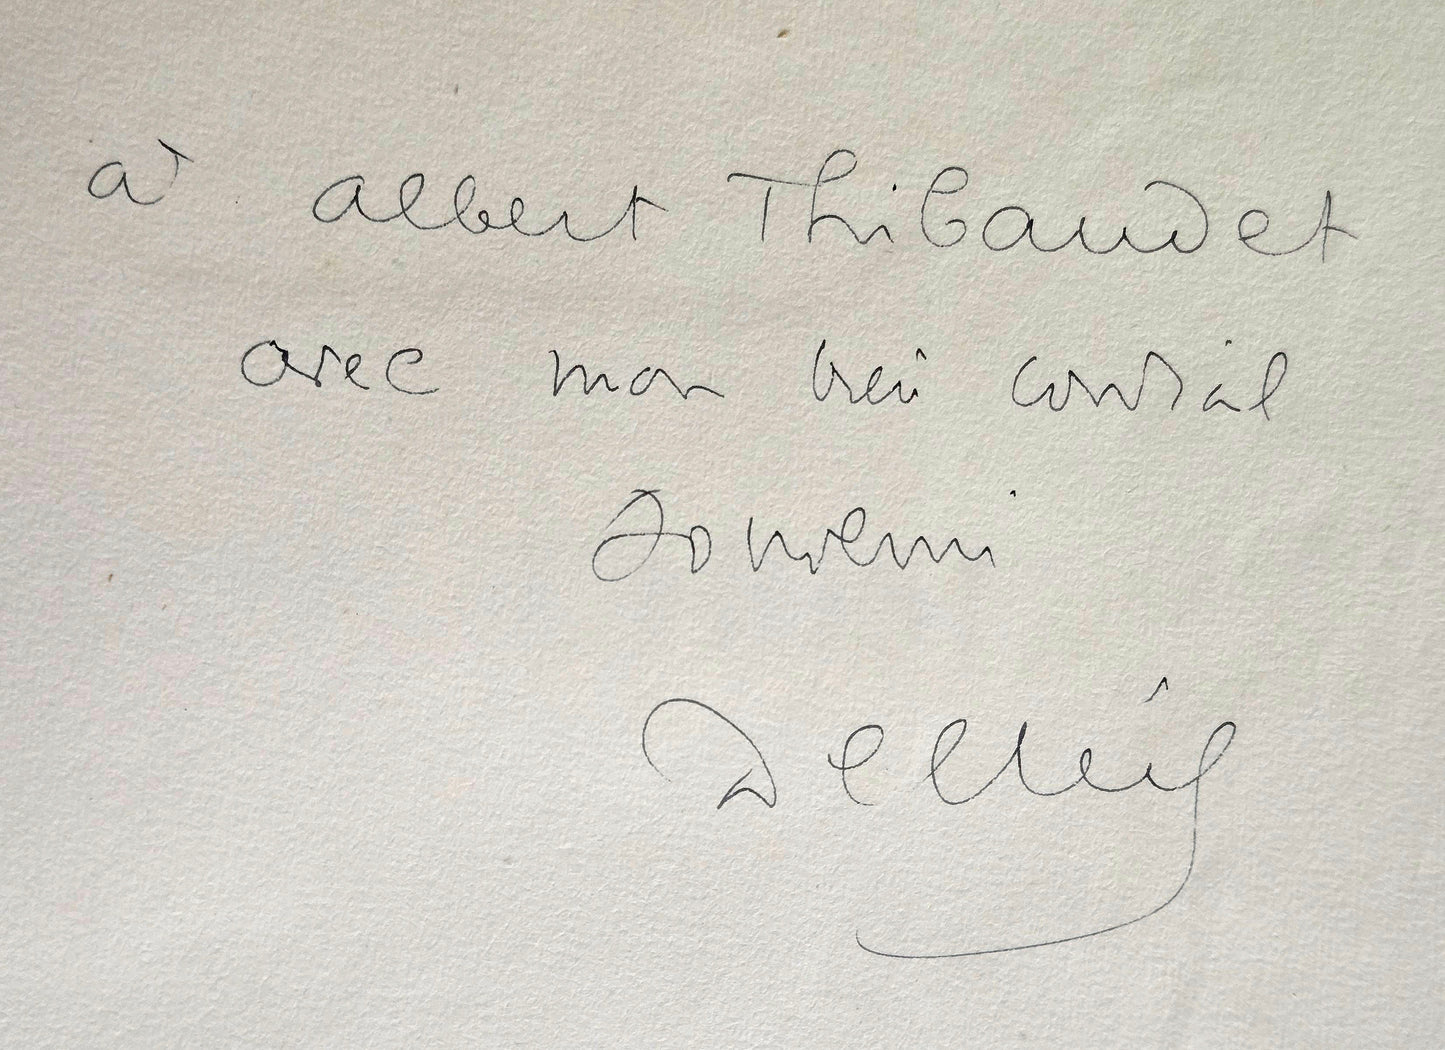 à Albert Thibaudet
avec mon bien cordial
souvenir
Delteil